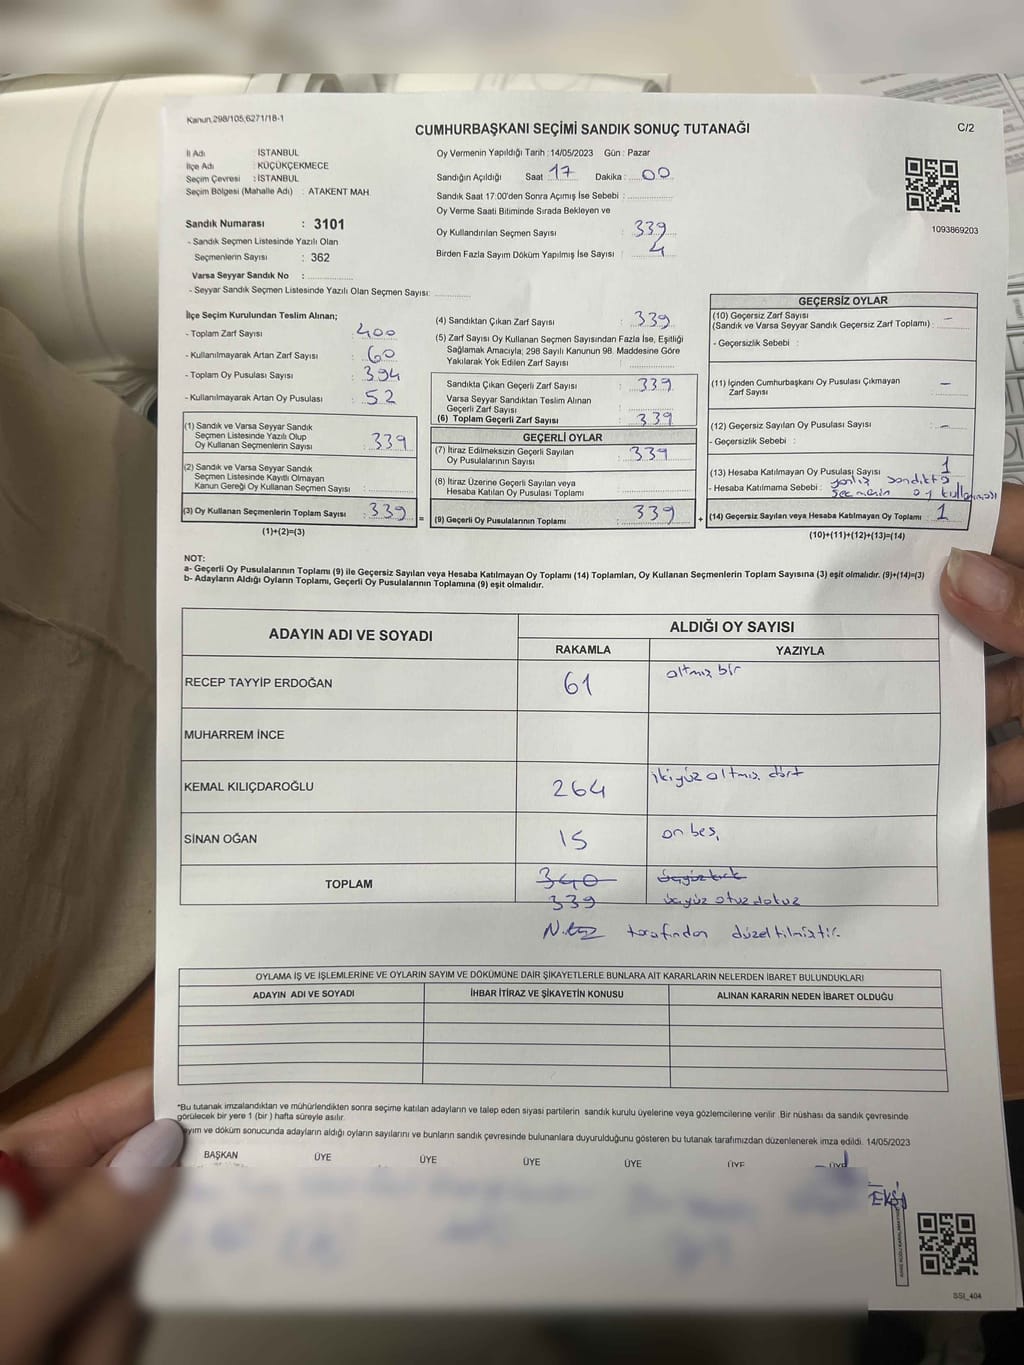 Kanun;298/105;6271/18-1
CUMHURBAŞKANI SEÇİMİ SANDIK SONUÇ TUTANAĞI
C/2
İl Adı : İSTANBUL
İlçe Adı : KÜÇÜKÇEKMECE
Seçim Çevresi : İSTANBUL
Seçim Bölgesi (Mahalle Adı) : ATAKENT MAH.
Sandık Numarası : 3101
- Sandık Seçmen Listesinde Yazılı Olan
Seçmenlerin Sayısı : 362
Varsa Seyyar Sandık No :
- Seyyar Sandık Seçmen Listesinde Yazılı Olan Seçmen Sayısı:
Oy Vermenin Yapıldığı Tarih :14/05/2023 Gün : Pazar
Sandığın Açıldığı Saat : 17 Dakika : 00
Sandık Saat 17:00'den Sonra Açımış İse Sebebi :
Oy Verme Saati Bitiminde Sırada Bekleyen ve
Oy Kullandırılan Seçmen Sayısı : 339
Birden Fazla Sayım Döküm Yapılmış İse Sayısı : 4
1093869203
İlçe Seçim Kurulundan Teslim Alınan;
- Toplam Zarf Sayısı : 400
- Kullanılmayarak Artan Zarf Sayısı : 60
- Toplam Oy Pusulası Sayısı : 394
- Kullanılmayarak Artan Oy Pusulası : 52
(1) Sandık ve Varsa Seyyar Sandık
Seçmen Listesinde Yazılı Olup
Oy Kullanan Seçmenlerin Sayısı : 339
(2) Sandık ve Varsa Seyyar Sandık
Seçmen Listesinde Kayıtlı Olmayan
Kanun Gereği Oy Kullanan Seçmen Sayısı :
(3) Oy Kullanan Seçmenlerin Toplam Sayısı : 339
(1)+(2)=(3)
=
(4) Sandıktan Çıkan Zarf Sayısı : 339
(5) Zarf Sayısı Oy Kullanan Seçmen Sayısından Fazla İse, Eşitliği
Sağlamak Amacıyla; 298 Sayılı Kanunun 98. Maddesine Göre
Yakılarak Yok Edilen Zarf Sayısı :
Sandıkta Çıkan Geçerli Zarf Sayısı : 339
Varsa Seyyar Sandıktan Teslim Alınan
Geçerli Zarf Sayısı :
(6) Toplam Geçerli Zarf Sayısı : 339
GEÇERLİ OYLAR
(7) İtiraz Edilmeksizin Geçerli Sayılan
Oy Pusulalarının Sayısı : 339
(8) İtiraz Üzerine Geçerli Sayılan veya
Hesaba Katılan Oy Pusulası Toplamı :
(9) Geçerli Oy Pusulalarının Toplamı : 339
+
GEÇERSİZ OYLAR
(10) Geçersiz Zarf Sayısı
(Sandık ve Varsa Seyyar Sandık Geçersiz Zarf Toplamı) : –
- Geçersizlik Sebebi :
(11) İçinden Cumhurbaşkanı Oy Pusulası Çıkmayan
Zarf Sayısı : –
(12) Geçersiz Sayılan Oy Pusulası Sayısı : –
- Geçersizlik Sebebi :
(13) Hesaba Katılmayan Oy Pusulası Sayısı : 1
- Hesaba Katılmama Sebebi : yanlış sandıkta
seçmenin oy kullanması
(14) Geçersiz Sayılan veya Hesaba Katılmayan Oy Toplamı : 1
(10)+(11)+(12)+(13)=(14)
NOT:
a- Geçerli Oy Pusulalarının Toplamı (9) ile Geçersiz Sayılan veya Hesaba Katılmayan Oy Toplamı (14) Toplamları, Oy Kullanan Seçmenlerin Toplam Sayısına (3) eşit olmalıdır. (9)+(14)=(3)
b- Adayların Aldığı Oyların Toplamı, Geçerli Oy Pusulalarının Toplamına (9) eşit olmalıdır.
ADAYIN ADI VE SOYADI
ALDIĞI OY SAYISI
RAKAMLA YAZIYLA
RECEP TAYYİP ERDOĞAN 61 altmış bir
MUHARREM İNCE
KEMAL KILIÇDAROĞLU 264 ikiyüz altmış dört
SİNAN OĞAN 15 on beş
TOPLAM 340 üçyüz kırk
339 üçyüz otuz dokuz
tarafından düzeltilmiştir.
OYLAMA İŞ VE İŞLEMLERİNE VE OYLARIN SAYIM VE DÖKÜMÜNE DAİR ŞİKAYETLERLE BUNLARA AİT KARARLARIN NELERDEN İBARET BULUNDUKLARI
ADAYIN ADI VE SOYADI İHBAR İTİRAZ VE ŞİKAYETİN KONUSU ALINAN KARARIN NEDEN İBARET OLDUĞU
*Bu tutanak imzalandıktan ve mühürlendikten sonra seçime katılan adayların ve talep eden siyasi partilerin sandık kurulu üyelerine veya gözlemcilerine verilir. Bir nüshası da sandık çevresinde
görülecek bir yere 1 (bir ) hafta süreyle asılır.
ayım ve döküm sonucunda adayların aldığı oyların sayılarını ve bunların sandık çevresinde bulunanlara duyurulduğunu gösteren bu tutanak tarafımızdan düzenlenerek imza edildi. 14/05/2023
BAŞKAN ÜYE ÜYE ÜYE ÜYE ÜYE ÜYE
SSI_404